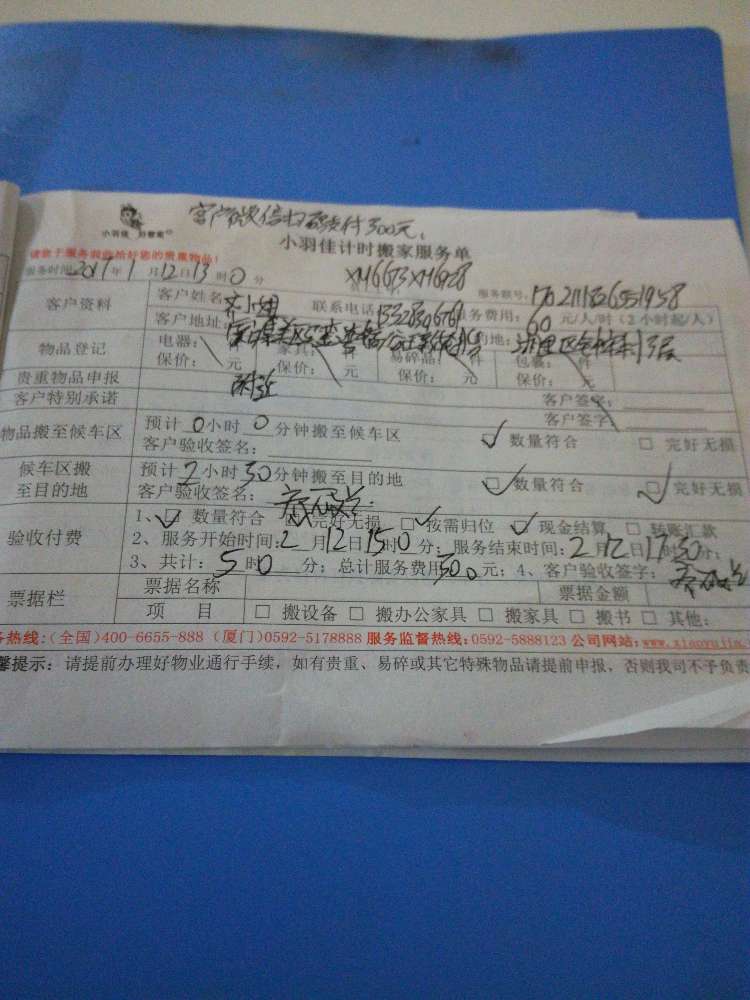 客户微信扫码支付300元
小羽佳 好管家
小羽佳计时搬家服务单
请您于服务前收拾好您的贵重物品!
服务时间: 2017年1月12日13时0分 XM6673 XM6928 服务联号:
客户资料 客户姓名: 联系电话: 服务费用: 60 元/人/时(2小时起/人)
客户地址: 目的地:
物品登记 电器: 家具: 件 易碎品: 件 包裹: 件
保价: 元 保价: 元 保价: 元 保价: 元
贵重物品申报 附近 客户签字:
客户特别承诺 客户签字:
物品搬至候车区 预计0小时0分钟搬至候车区 ☑ 数量符合 □ 完好无损
客户验收签名:
候车区搬至目的地 预计2小时30分钟搬至目的地 ☑ 数量符合 ☑ 完好无损
客户验收签名:
验收付费 1、☑ 数量符合 ☑ 完好无损 ☑ 按需归位 ☑ 现金结算 □ 转账汇款
2、服务开始时间: 2月12日15时0分; 服务结束时间: 2月12日17时30分;
3、共计: 5时0分; 总计服务费用 300 元; 4、客户验收签字:
票据栏 票据名称 票据金额
项 目 □ 搬设备 □ 搬办公家具 □ 搬家具 □ 搬书 □ 其他:
务热线:(全国)400-6655-888 (厦门)0592-5178888 服务监督热线:0592-5888123 公司网站:www.xiaoyujia.
馨提示: 请提前办理好物业通行手续, 如有贵重、易碎或其它特殊物品请提前申报, 否则我司不予负责